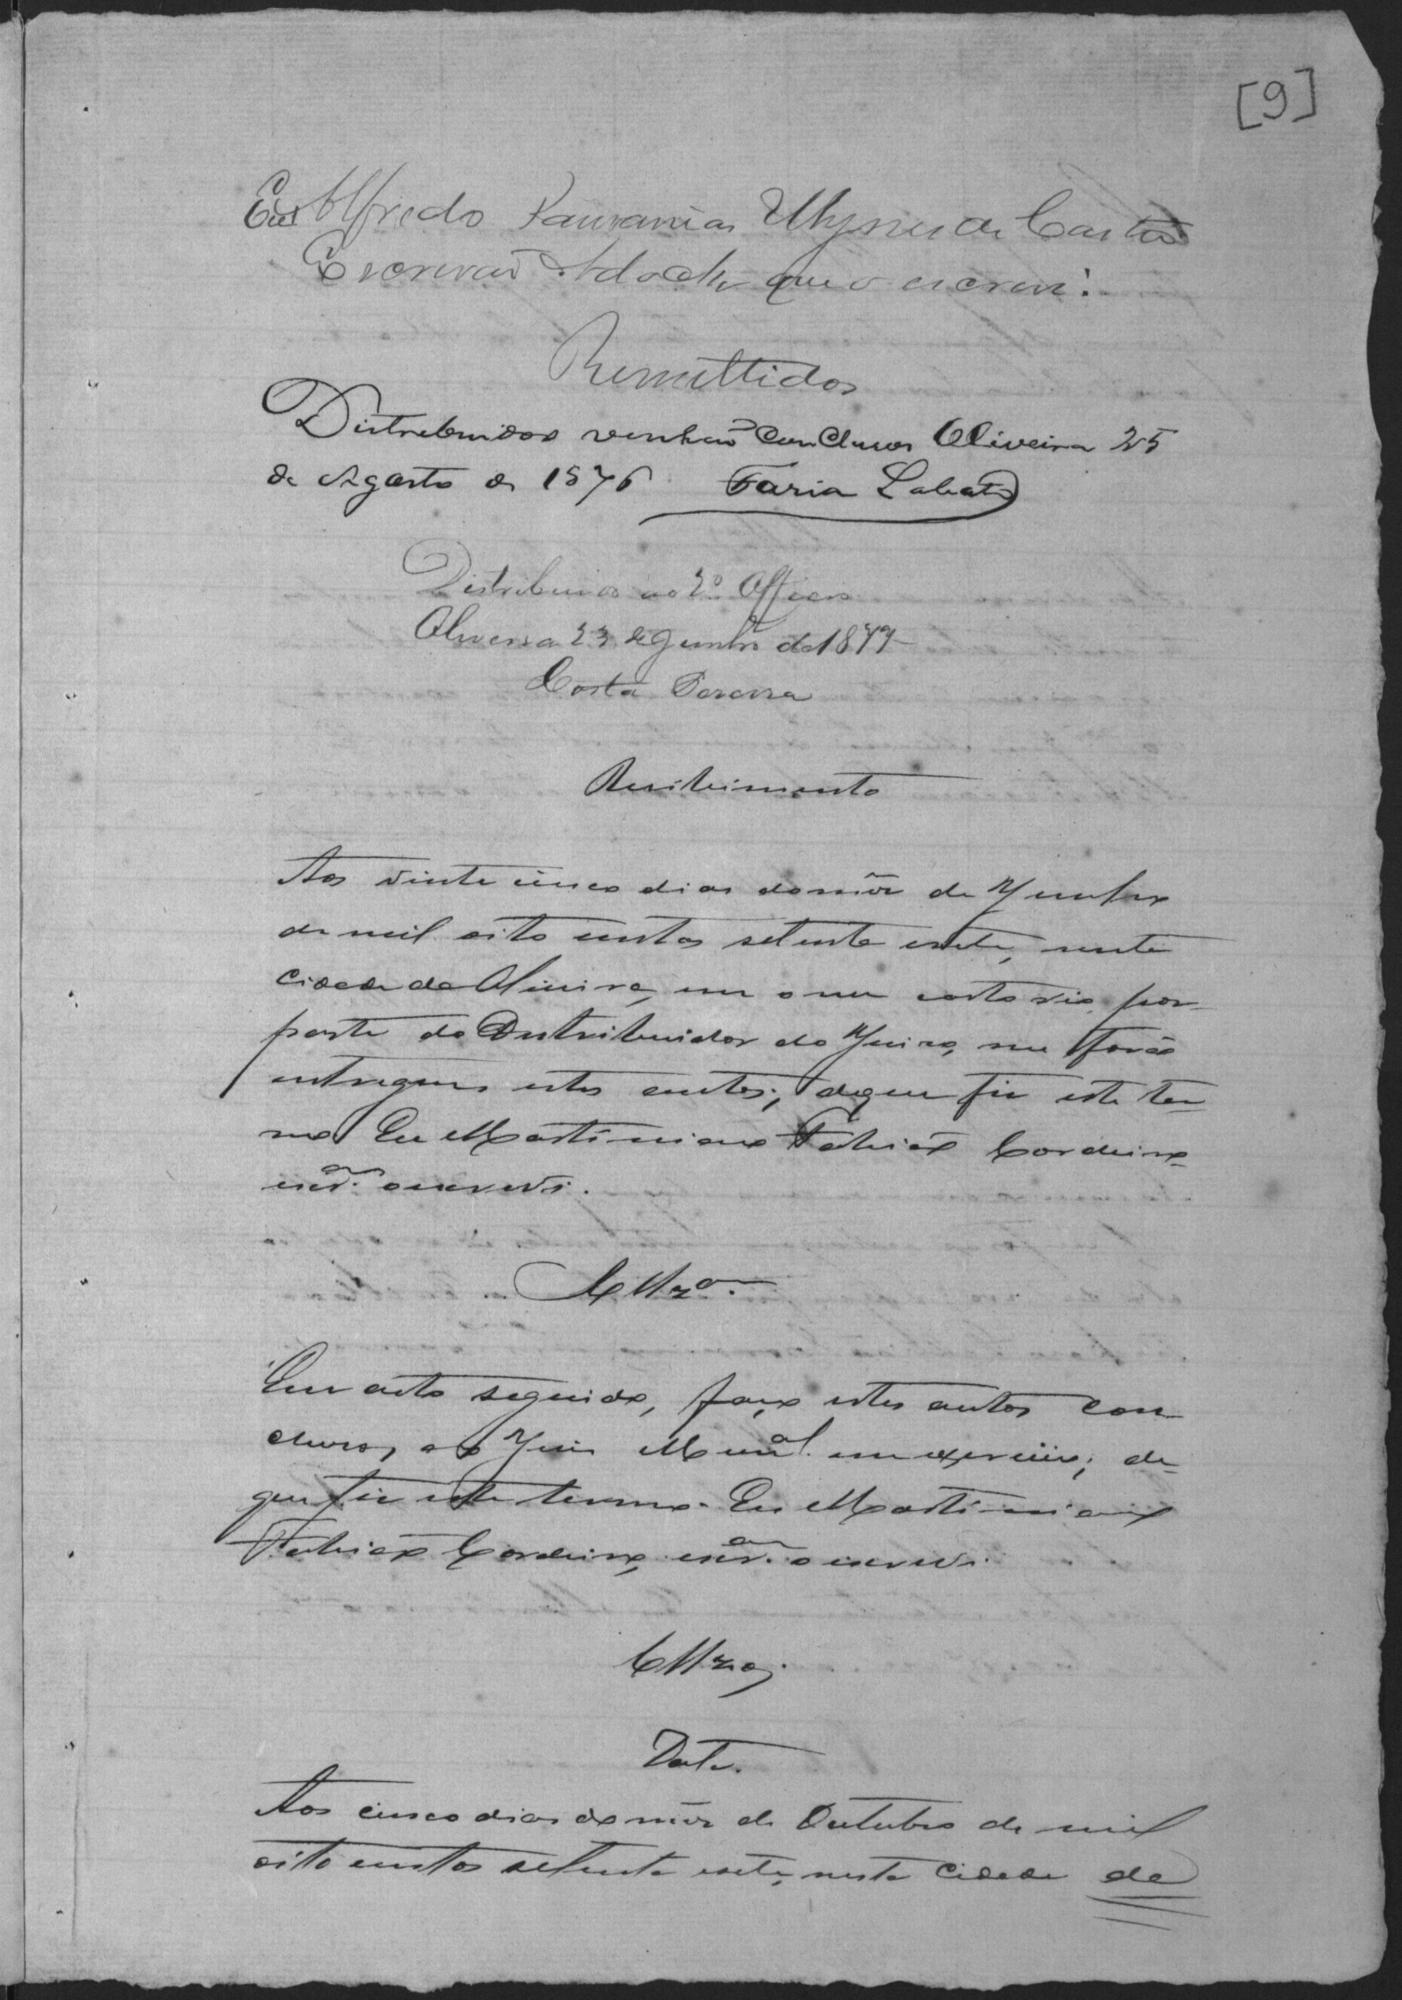 [9]
Eu Alfredo Pausanias Ulysses de Castro
Escrivão Ad ock que o escrevi.
Remettidos
Distrebuidos venhão Concluzos Oliveira 25
de Agosto de 1876 Faria Lobato
Distribuido ao 2º Officio
Oliveira 23 de Junho de 1877
Costa Pereira
Recibimento
Aos vinte cinco dias do mês de Junho
de mil oito centos setenta esete, nesta
cidade de Oliveira, em o meu cartorio, por
parte do Distribuidor do Juizo, me forão
entregues estes autos; de que fiz este ter
mo Eu Martiniano Fabião Cordeiro
escr.am o escrevi.
Cllzam.
Em acto seguido, faço estes autos con
clusos, ao Juiz Mun.al em exercicio; de
que fiz este termo. Eu Martiniano
Fabião Cordeiro, escr.am o escrevi.
Cllzos.
Data.
Aos cinco dias do mês de Outubro de mil
oito centos setenta esete, nesta cidade de